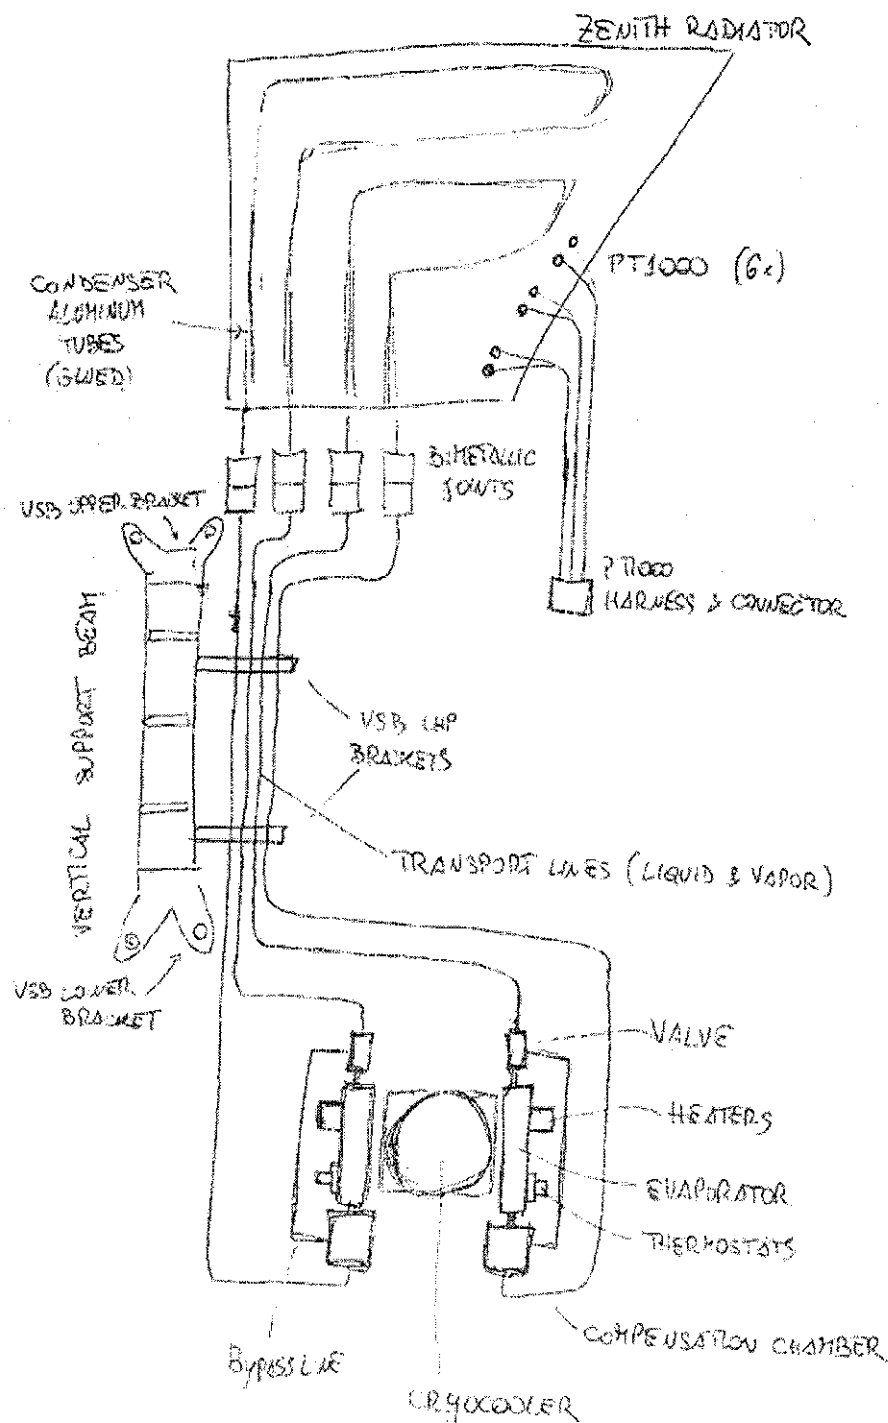 ZENITH RADIATOR
PT1000 (6x)
CONDENSER
ALUMINUM
TUBES
(GLUED)
BIMETALLIC
JOINTS
VSB UPPER BRACKET
PT1000
HARNESS & CONNECTOR
VERTICAL SUPPORT BEAM
VSB LHP
BRACKETS
TRANSPORT LINES (LIQUID & VAPOR)
VSB LOWER
BRACKET
VALVE
HEATERS
EVAPORATOR
THERMOSTATS
COMPENSATION CHAMBER
BYPASS LINE
CRYOCOOLER